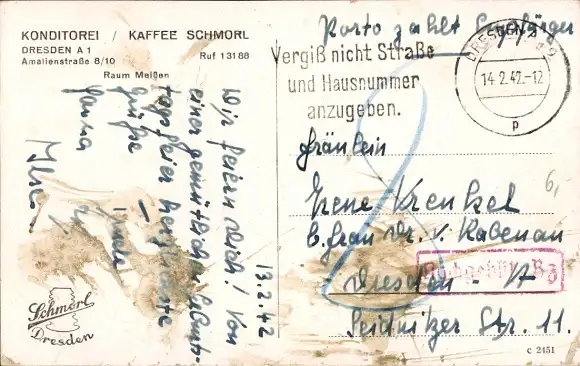 KONDITOREI / KAFFEE SCHMORL
DRESDEN A 1
Amalienstraße 8/10
Ruf 13188
Raum Meißen
13.2.42
Wir feiern Dich! Von
einer gemütlichen Geburts-
tagsfeier herzlichste
Grüße
Hanna
Ilse
Schmorl
Dresden
Porto zahlt Empfänger
Vergiß nicht Straße
und Hausnummer
anzugeben.
DRESDEN
14.2.42.-12
p
Fräulein
Irene Krenkel
b. Frau Dr. v. Rabenau
Dresden - A
Seidnitzer Str. 11.
6,-
c 2451